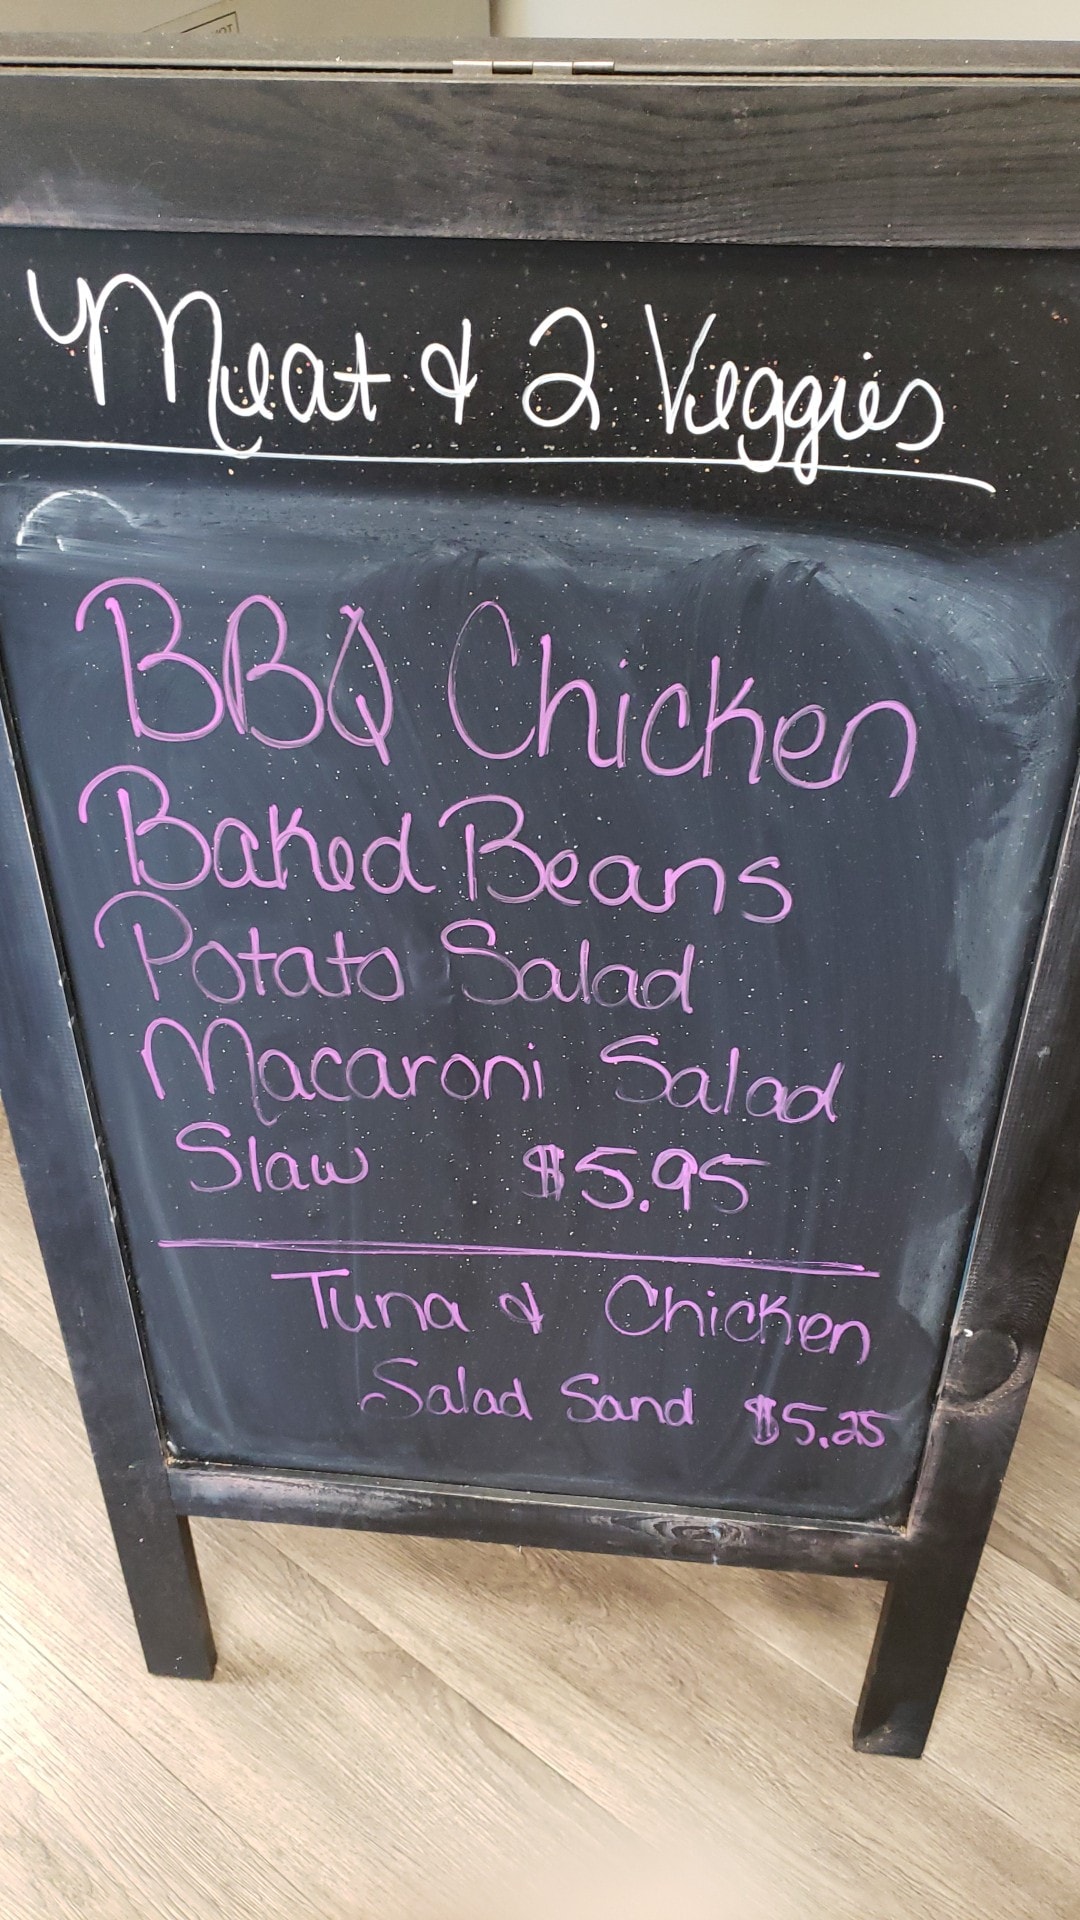 Meat & 2 Veggies
BBQ Chicken
Baked Beans
Potato Salad
Macaroni Salad
Slaw $5.95
Tuna & Chicken
Salad Sand $5.25